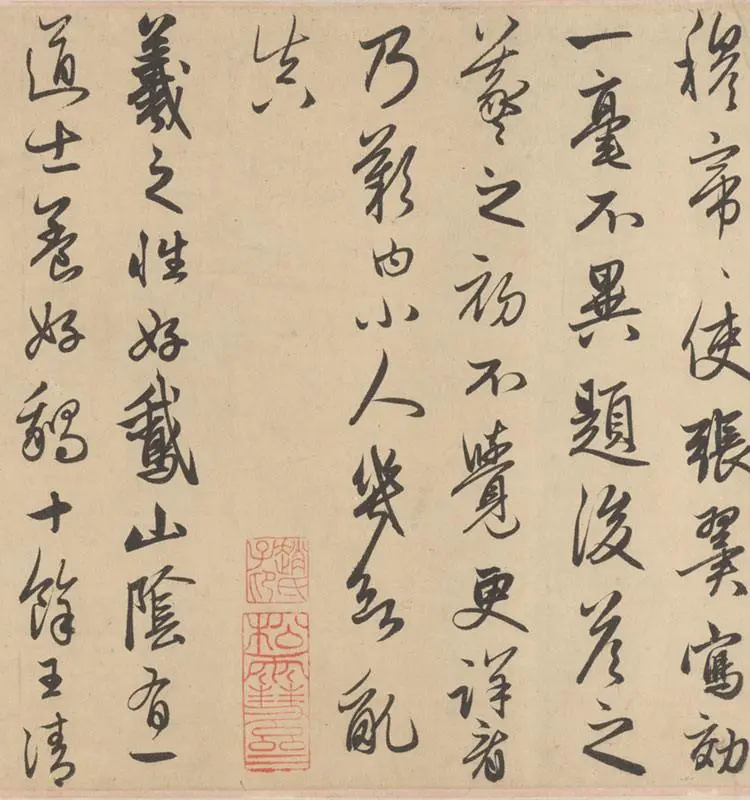 穆帝、使張翼寫効
一毫不異題後答之
羲之初不覺更詳看
乃歎曰小人幾欲亂
真
趙氏子昂
松雪齋
羲之性好鵞山陰有一
道士養好鵝十餘王清